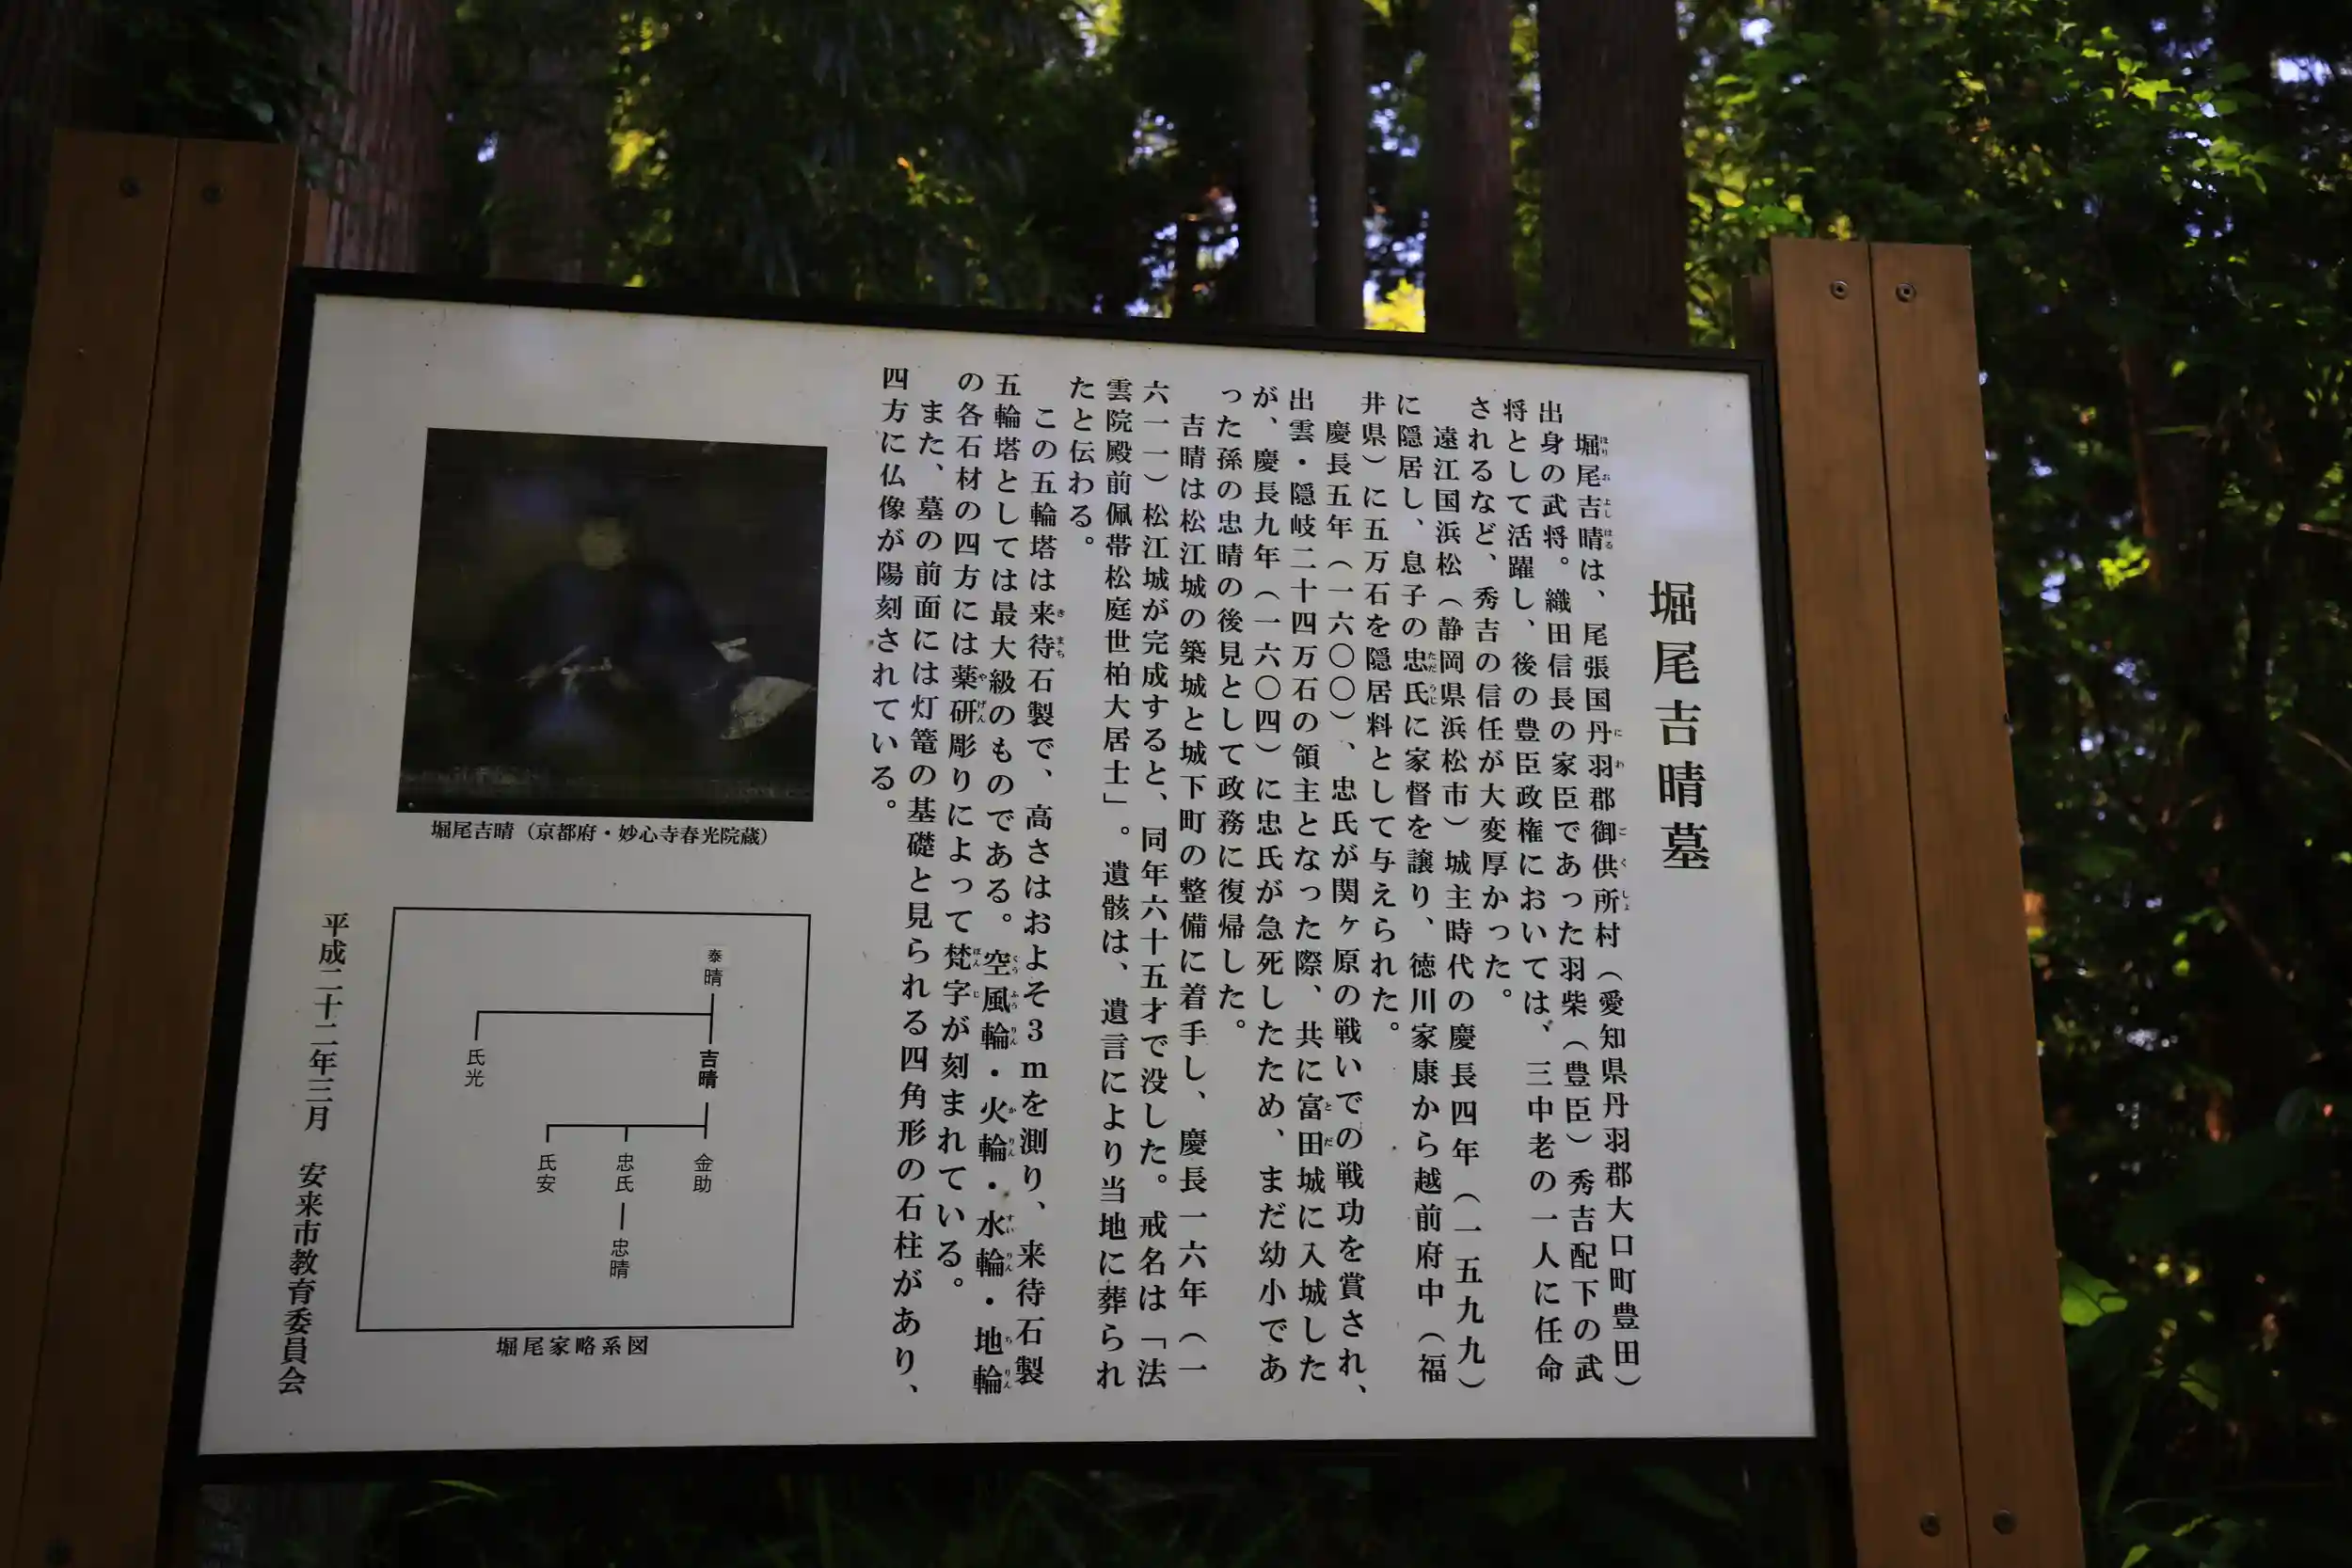 堀尾吉晴墓
堀尾吉晴は、尾張国丹羽郡御供所村（愛知県丹羽郡大口町豊田）
出身の武将。織田信長の家臣であった羽柴（豊臣）秀吉配下の武
将として活躍し、後の豊臣政権においては、三中老の一人に任命
されるなど、秀吉の信任が大変厚かった。
遠江国浜松（静岡県浜松市）城主時代の慶長四年（一五九九）
に隠居し、息子の忠氏に家督を譲り、徳川家康から越前府中（福
井県）に五万石を隠居料として与えられた。
慶長五年（一六〇〇）、忠氏が関ヶ原の戦いでの戦功を賞され、
出雲・隠岐二十四万石の領主となった際、共に富田城に入城した
が、慶長九年（一六〇四）に忠氏が急死したため、まだ幼小であ
った孫の忠晴の後見として政務に復帰した。
吉晴は松江城の築城と城下町の整備に着手し、慶長一六年（一
六一一）松江城が完成すると、同年六十五才で没した。戒名は「法
雲院殿前佩帯松庭世柏大居士」。遺骸は、遺言により当地に葬られ
たと伝わる。
この五輪塔は来待石製で、高さはおよそ3mを測り、来待石製
五輪塔としては最大級のものである。空風輪・火輪・水輪・地輪
の各石材の四方には薬研彫りによって梵字が刻まれている。
また、墓の前面には灯篭の基礎と見られる四角形の石柱があり、
四方に仏像が陽刻されている。
堀尾吉晴（京都府・妙心寺春光院蔵）
泰晴
吉晴
氏光
金助
忠氏
氏安
忠晴
堀尾家略系図
平成二十二年三月　安来市教育委員会